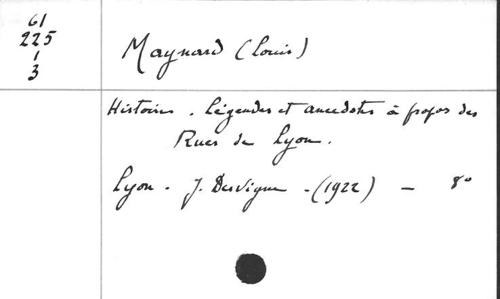 61
225
1
3
Maynard (Louis)
Histoires . Légendes et anecdotes à propos des
Rues de Lyon .
Lyon - J. Desvigne - (1922) - 8°